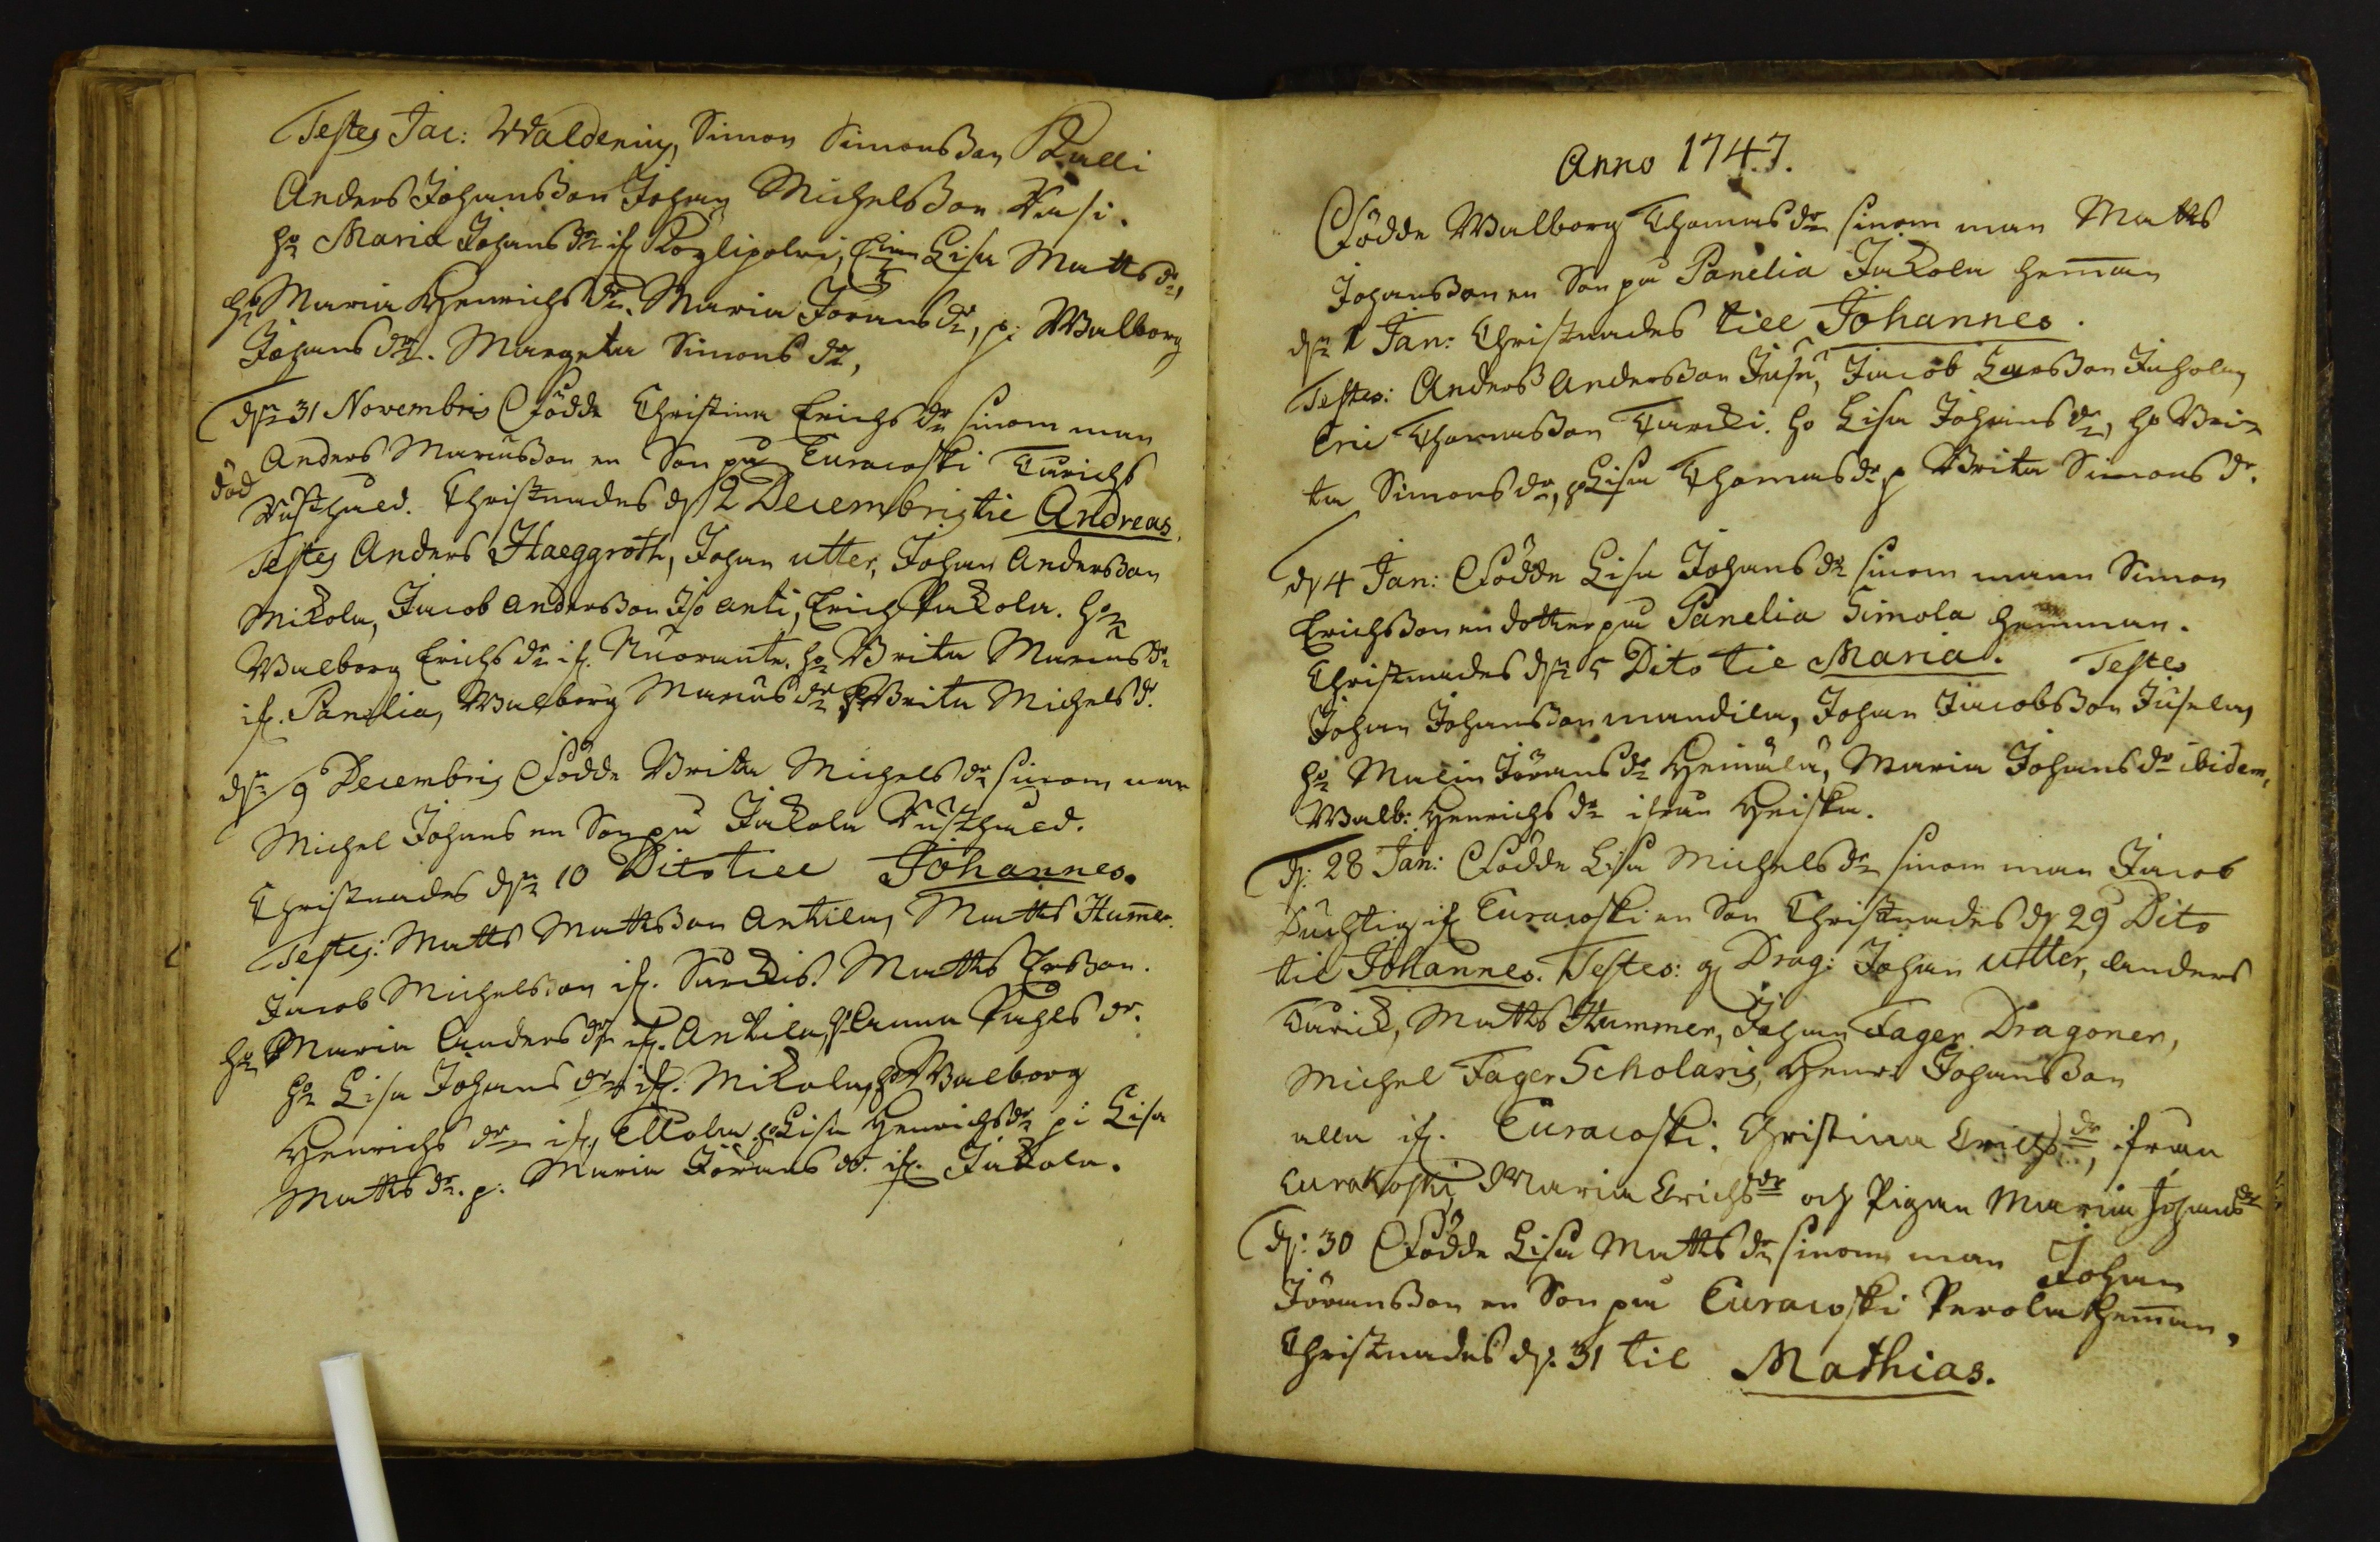 Testes Jac: Waldenius, Simon Simonsson Kulli
Anders Johansson Johan Michelsson Knsi.
hu Maria Johans dr if Köylipolvi, Lisa Matts dr,
hu Maria Henrichs dr. Maria Jörans dr, p: Walborg
Johans dr. Margeta Simons dr,
dn 31 Novembris Födde Christina Erichs dr sinom man
Anders Mariusson en Son på Eurakoski Turichs
död
Rusthåld. Christnades d 2 Decembris til Andreas.
Testes Anders Haeggroth, Johan utter, Johan Andersson
Mikola, Jacob Andersson Iso Anti, Erich Pukola. hu
Walborg Erichs dr if. Nuorante. hu Brita Marcus dr
if. Panelia, Walborg Marcus dr p Brita Michels dr.
dn 9 Decembris Födde Brita Michels dr sinom man
Michel Johans en Son på Jakola Rusthåld.
Christnades dn 10 Dito till Johannes.
Testes: Matts Mattsson Antila, Matts Humer.
Jacob Michelsson if. Sarckis. Matts Ersson.
hu Maria Anders dr if. Antila, p Anna Påhls dr.
hu Lisa Johans dr if. Mikola, hu Walborg
Henrichs dr if. Ellola p Lisa Henrichs dr pi Lisa
Matts dr. p. Maria Jörans dr. if. Jakola.
Anno 1747.
Födde Walborg Thomas dr sinom man Matts
Johansson en Son på Panelia Jakola heman
dn 1 Jan: Christnades till Johannes.
Testes: Anders Andersson Juse, Jacob Larsson Juhola,
Eric Thomasson Turcki. hu Lisa Johans dr, hu Bri-
ta Simons dr, p Lisa Thomas dr p Brita Simons dr.
d 4 Jan: Födde Lisa Johans dr sinom mann Simon
Erichsson en dotter på Panelia Simola hemman.
Christnades dn 5 Dito til Maria. Testes
Johan Johansson mandila, Johan Jacobsson Jusela,
hu Malin Jörans dr Heinälä, Maria Johans dr ibidem,
Walb: Henrichs dr ifrån Heiska.
d: 28 Jan: Födde Lisa Michels dr sinom man Jacob
Duchtig if Euracoski en Son Christnades d 29 Dito
til Johannes. Testes: g Drag: Johan utter, Anders
Turick, Matts Hummer, Johan Fager Dragoner,
Michel Fager Scholaris, Henr: Johansson
alla if. Euracoski. Christina Erichs dr, ifrån
Eurakoski, Maria Erichs dr och Pigan Maria Johans dr
d: 30 Födde Lisa Matts dr sinom man Johan
Jöransson en Son på Euracoski Perola heman,
Christnades d: 31 til Mathias.